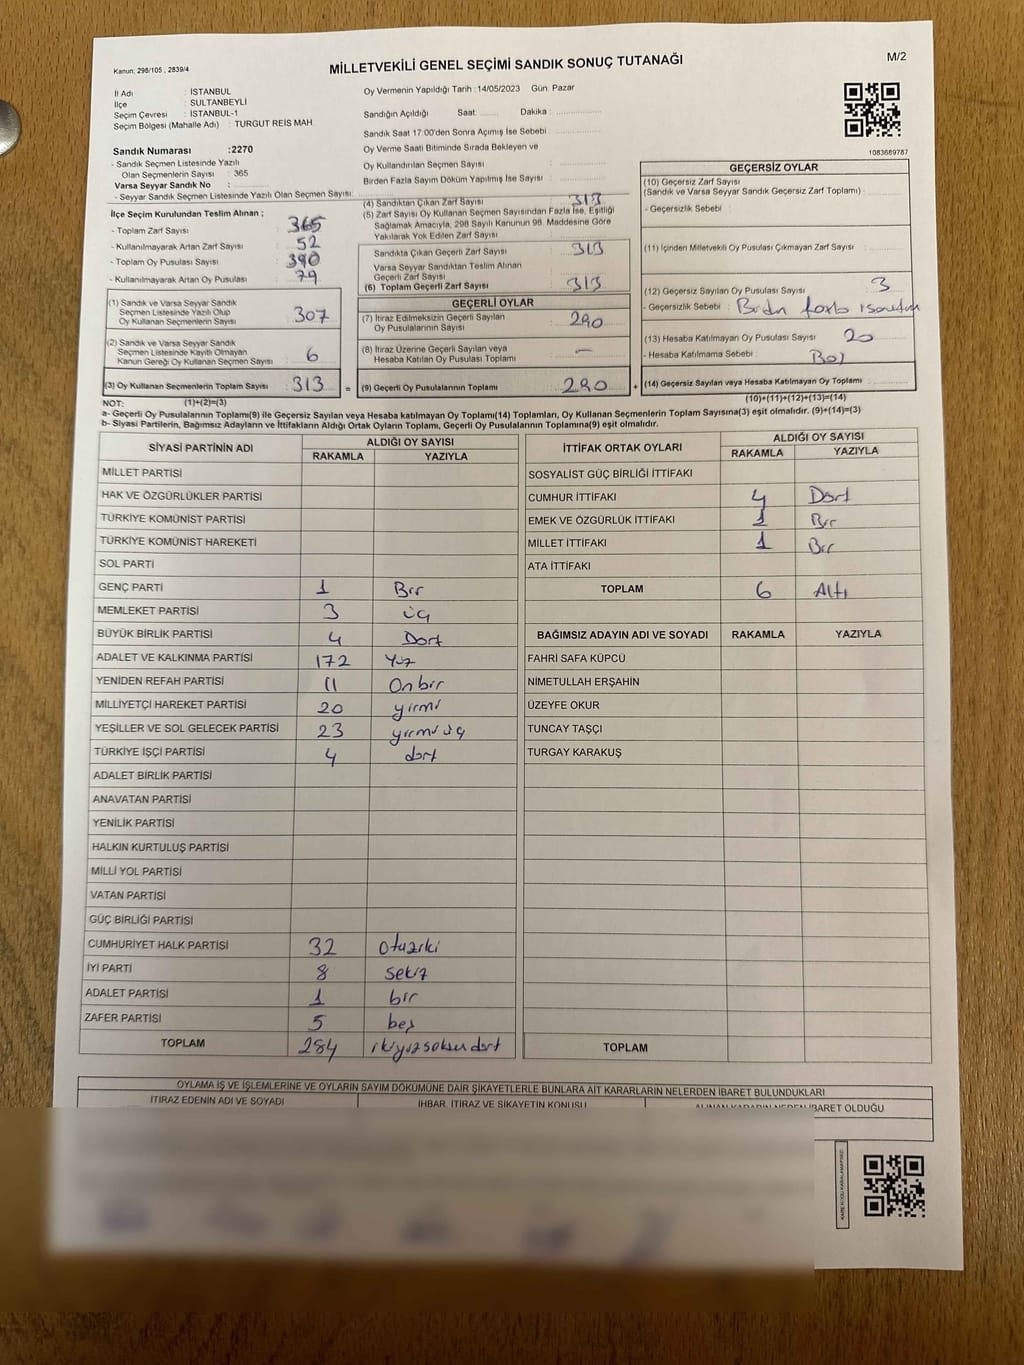 Kanun: 298/105 , 2839/4
MİLLETVEKİLİ GENEL SEÇİMİ SANDIK SONUÇ TUTANAĞI
M/2
İl Adı : İSTANBUL
İlçe : SULTANBEYLİ
Seçim Çevresi : İSTANBUL-1
Seçim Bölgesi (Mahalle Adı) : TURGUT REİS MAH.
Sandık Numarası :2270
- Sandık Seçmen Listesinde Yazılı
Olan Seçmenlerin Sayısı : 365
Varsa Seyyar Sandık No :
- Seyyar Sandık Seçmen Listesinde Yazılı Olan Seçmen Sayısı:
Oy Vermenin Yapıldığı Tarih :14/05/2023 Gün: Pazar
Sandığın Açıldığı Saat: Dakika :
Sandık Saat 17:00'den Sonra Açımış İse Sebebi :
Oy Verme Saati Bitiminde Sırada Bekleyen ve
Oy Kullandırılan Seçmen Sayısı :
Birden Fazla Sayım Döküm Yapılmış İse Sayısı :
1083689787
İlçe Seçim Kurulundan Teslim Alınan ;
- Toplam Zarf Sayısı : 365
- Kullanılmayarak Artan Zarf Sayısı : 52
- Toplam Oy Pusulası Sayısı : 390
- Kullanılmayarak Artan Oy Pusulası : 79
(1) Sandık ve Varsa Seyyar Sandık
Seçmen Listesinde Yazılı Olup
Oy Kullanan Seçmenlerin Sayısı : 307
(2) Sandık ve Varsa Seyyar Sandık
Seçmen Listesinde Kayıtlı Olmayan
Kanun Gereği Oy Kullanan Seçmen Sayısı : 6
(3) Oy Kullanan Seçmenlerin Toplam Sayısı : 313 =
(4) Sandıktan Çıkan Zarf Sayısı : 313
(5) Zarf Sayısı Oy Kullanan Seçmen Sayısından Fazla İse, Eşitliği
Sağlamak Amacıyla, 298 Sayılı Kanunun 98. Maddesine Göre
Yakılarak Yok Edilen Zarf Sayısı :
Sandıkta Çıkan Geçerli Zarf Sayısı : 313
Varsa Seyyar Sandıktan Teslim Alınan
Geçerli Zarf Sayısı :
(6) Toplam Geçerli Zarf Sayısı : 313
GEÇERLİ OYLAR
(7) İtiraz Edilmeksizin Geçerli Sayılan
Oy Pusulalarının Sayısı : 290
(8) İtiraz Üzerine Geçerli Sayılan veya
Hesaba Katılan Oy Pusulası Toplamı : —
(9) Geçerli Oy Pusulalarının Toplamı : 290 +
GEÇERSİZ OYLAR
(10) Geçersiz Zarf Sayısı
(Sandık ve Varsa Seyyar Sandık Geçersiz Zarf Toplamı) :
- Geçersizlik Sebebi :
(11) İçinden Milletvekili Oy Pusulası Çıkmayan Zarf Sayısı :
(12) Geçersiz Sayılan Oy Pusulası Sayısı : 3
- Geçersizlik Sebebi : Birden fazla
(13) Hesaba Katılmayan Oy Pusulası Sayısı : 20
- Hesaba Katılmama Sebebi : Boş
(14) Geçersiz Sayılan veya Hesaba Katılmayan Oy Toplamı :
NOT: (1)+(2)=(3) (10)+(11)+(12)+(13)=(14)
a- Geçerli Oy Pusulalarının Toplamı(9) ile Geçersiz Sayılan veya Hesaba katılmayan Oy Toplamı(14) Toplamları, Oy Kullanan Seçmenlerin Toplam Sayısına(3) eşit olmalıdır. (9)+(14)=(3)
b- Siyasi Partilerin, Bağımsız Adayların ve İttifakların Aldığı Ortak Oyların Toplamı, Geçerli Oy Pusulalarının Toplamına(9) eşit olmalıdır.
SİYASİ PARTİNİN ADI ALDIĞI OY SAYISI
RAKAMLA YAZIYLA
MİLLET PARTİSİ
HAK VE ÖZGÜRLÜKLER PARTİSİ
TÜRKİYE KOMÜNİST PARTİSİ
TÜRKİYE KOMÜNİST HAREKETİ
SOL PARTİ
GENÇ PARTİ 1 Bir
MEMLEKET PARTİSİ 3 üç
BÜYÜK BİRLİK PARTİSİ 4 Dört
ADALET VE KALKINMA PARTİSİ 172 Yüz
YENİDEN REFAH PARTİSİ 11 On bir
MİLLİYETÇİ HAREKET PARTİSİ 20 yirmi
YEŞİLLER VE SOL GELECEK PARTİSİ 23 yirmi üç
TÜRKİYE İŞÇİ PARTİSİ 4 dört
ADALET BİRLİK PARTİSİ
ANAVATAN PARTİSİ
YENİLİK PARTİSİ
HALKIN KURTULUŞ PARTİSİ
MİLLİ YOL PARTİSİ
VATAN PARTİSİ
GÜÇ BİRLİĞİ PARTİSİ
CUMHURİYET HALK PARTİSİ 32 otuziki
İYİ PARTİ 8 sekiz
ADALET PARTİSİ 1 bir
ZAFER PARTİSİ 5 beş
TOPLAM 284 ikiyüzseksen dört
İTTİFAK ORTAK OYLARI ALDIĞI OY SAYISI
RAKAMLA YAZIYLA
SOSYALİST GÜÇ BİRLİĞİ İTTİFAKI
CUMHUR İTTİFAKI 4 Dört
EMEK VE ÖZGÜRLÜK İTTİFAKI 1 Bir
MİLLET İTTİFAKI 1 Bir
ATA İTTİFAKI
TOPLAM 6 Altı
BAĞIMSIZ ADAYIN ADI VE SOYADI RAKAMLA YAZIYLA
FAHRİ SAFA KÜPCÜ
NİMETULLAH ERŞAHİN
ÜZEYFE OKUR
TUNCAY TAŞÇI
TURGAY KARAKUŞ
TOPLAM
OYLAMA İŞ VE İŞLEMLERİNE VE OYLARIN SAYIM DÖKÜMÜNE DAİR ŞİKAYETLERLE BUNLARA AİT KARARLARIN NELERDEN İBARET BULUNDUKLARI
İTİRAZ EDENİN ADI VE SOYADI İHBAR, İTİRAZ VE ŞİKAYETİN KONUSU ALINAN KARARIN NEDEN İBARET OLDUĞU